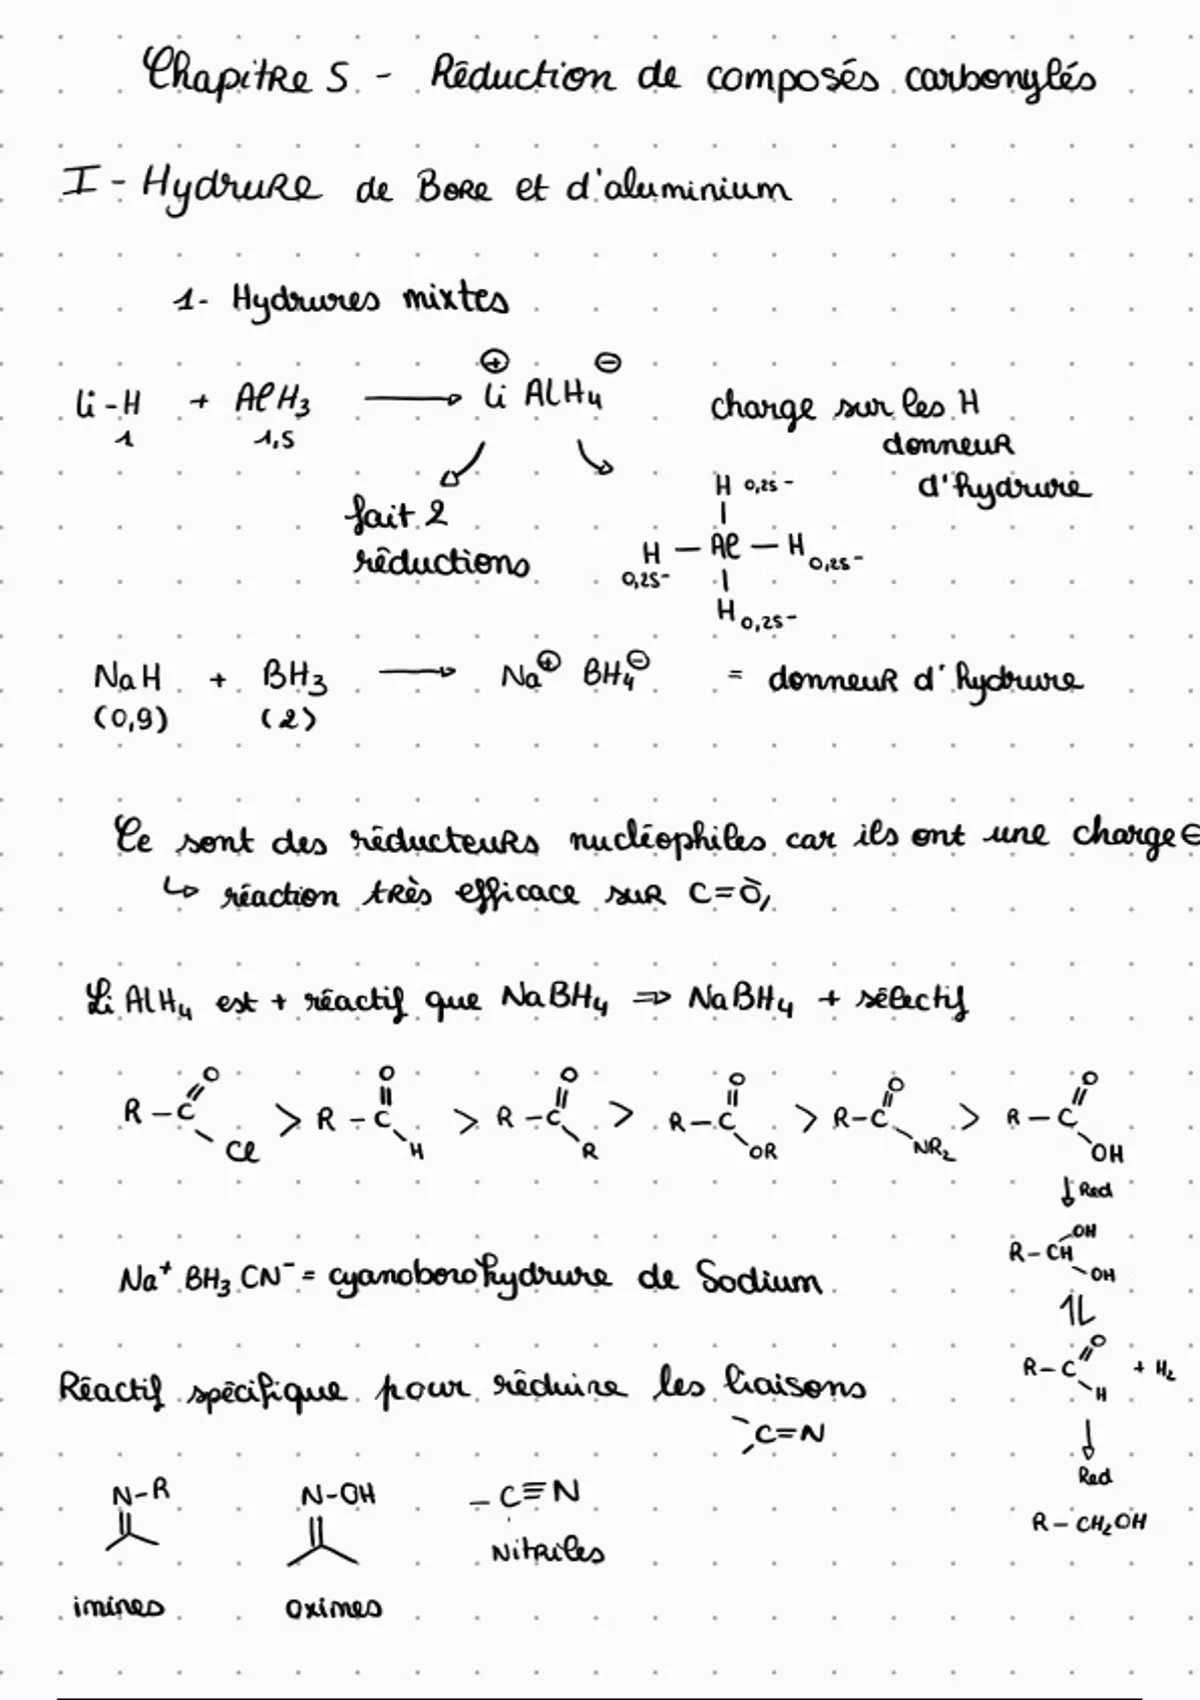 Chapitre 5 - Réduction de composés carbonylés
I - Hydrure de Bore et d'aluminium
1- Hydrures mixtes
Li-H + AlH3 ⟶ Li⊕ AlH4⊖ charge sur les H
1 1,5 donneur
d'hydrure
fait 2
réductions
H 0,25-
H — Al — H 0,25-
0,25-
H 0,25-
NaH + BH3 ⟶ Na⊕ BH4⊖ = donneur d'hydrure
(0,9) (2)
Ce sont des réducteurs nucléophiles car ils ont une charge ⊖
↳ réaction très efficace sur C=O,
LiAlH4 est + réactif que NaBH4 ⇒ NaBH4 + sélectif
O O O O O O
R-C > R-C > R-C > R-C > R-C > R-C
Cl H R OR NR2 OH
↓ Red
OH
R-CH
OH
Na+ BH3CN- = cyanoborohydrure de Sodium
⇅
O
R-C + H2
H
Réactif spécifique pour réduire les liaisons
C=N
↓
Red
N-R N-OH -C≡N
R-CH2OH
Nitriles
imines oximes